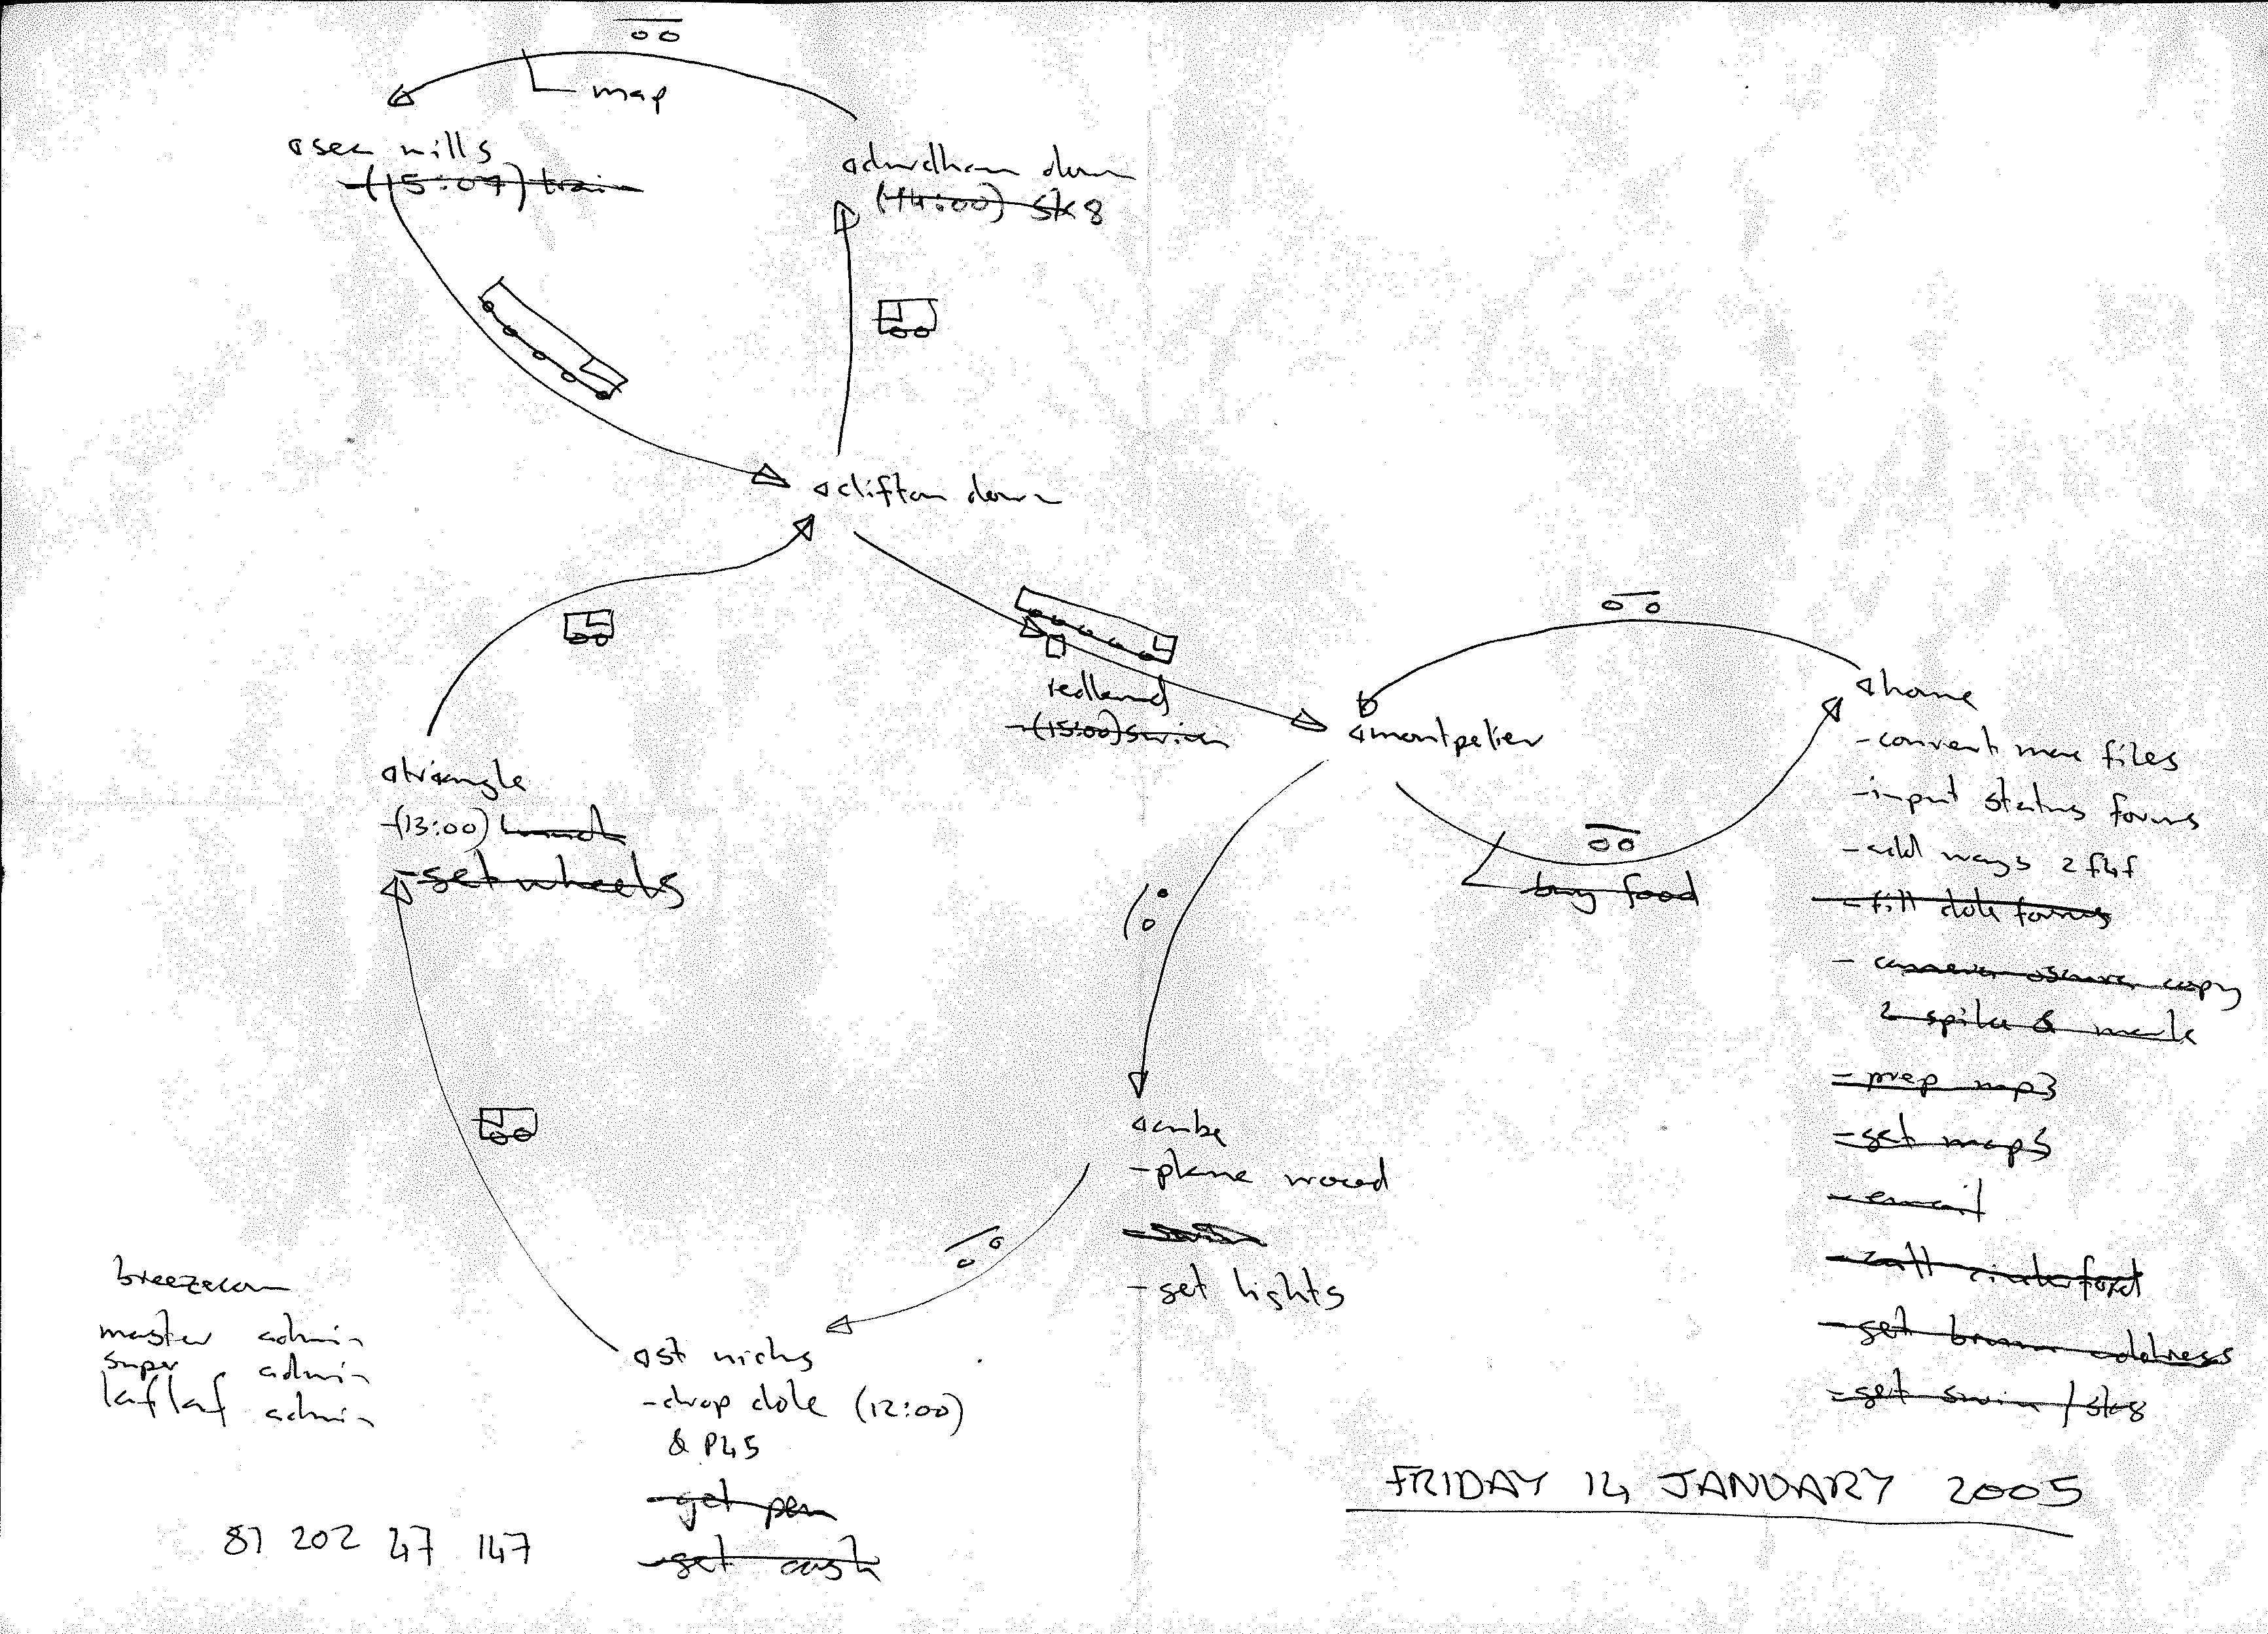 map
sea mills
(15:07) train
durdham down
(14:00) sk8
clifton down
redland
-(15:00) swim
montpelier
home
- convert more files
- input status forms
- add ways 2 f4f
- fill dole forms
- copy
2 spike & mark
- prep mp3
- get maps
- email
- call cinderford
- get address
- get swim / sk8
buy food
triangle
-(13:00) lunch
- get wheels
cube
- plane wood
- swim
- get lights
st nicks
- drop dole (12:00)
& P45
- get pen
- get cash
breezecom
master admin
super admin
laflaf admin
81 202 47 147
FRIDAY 14 JANUARY 2005